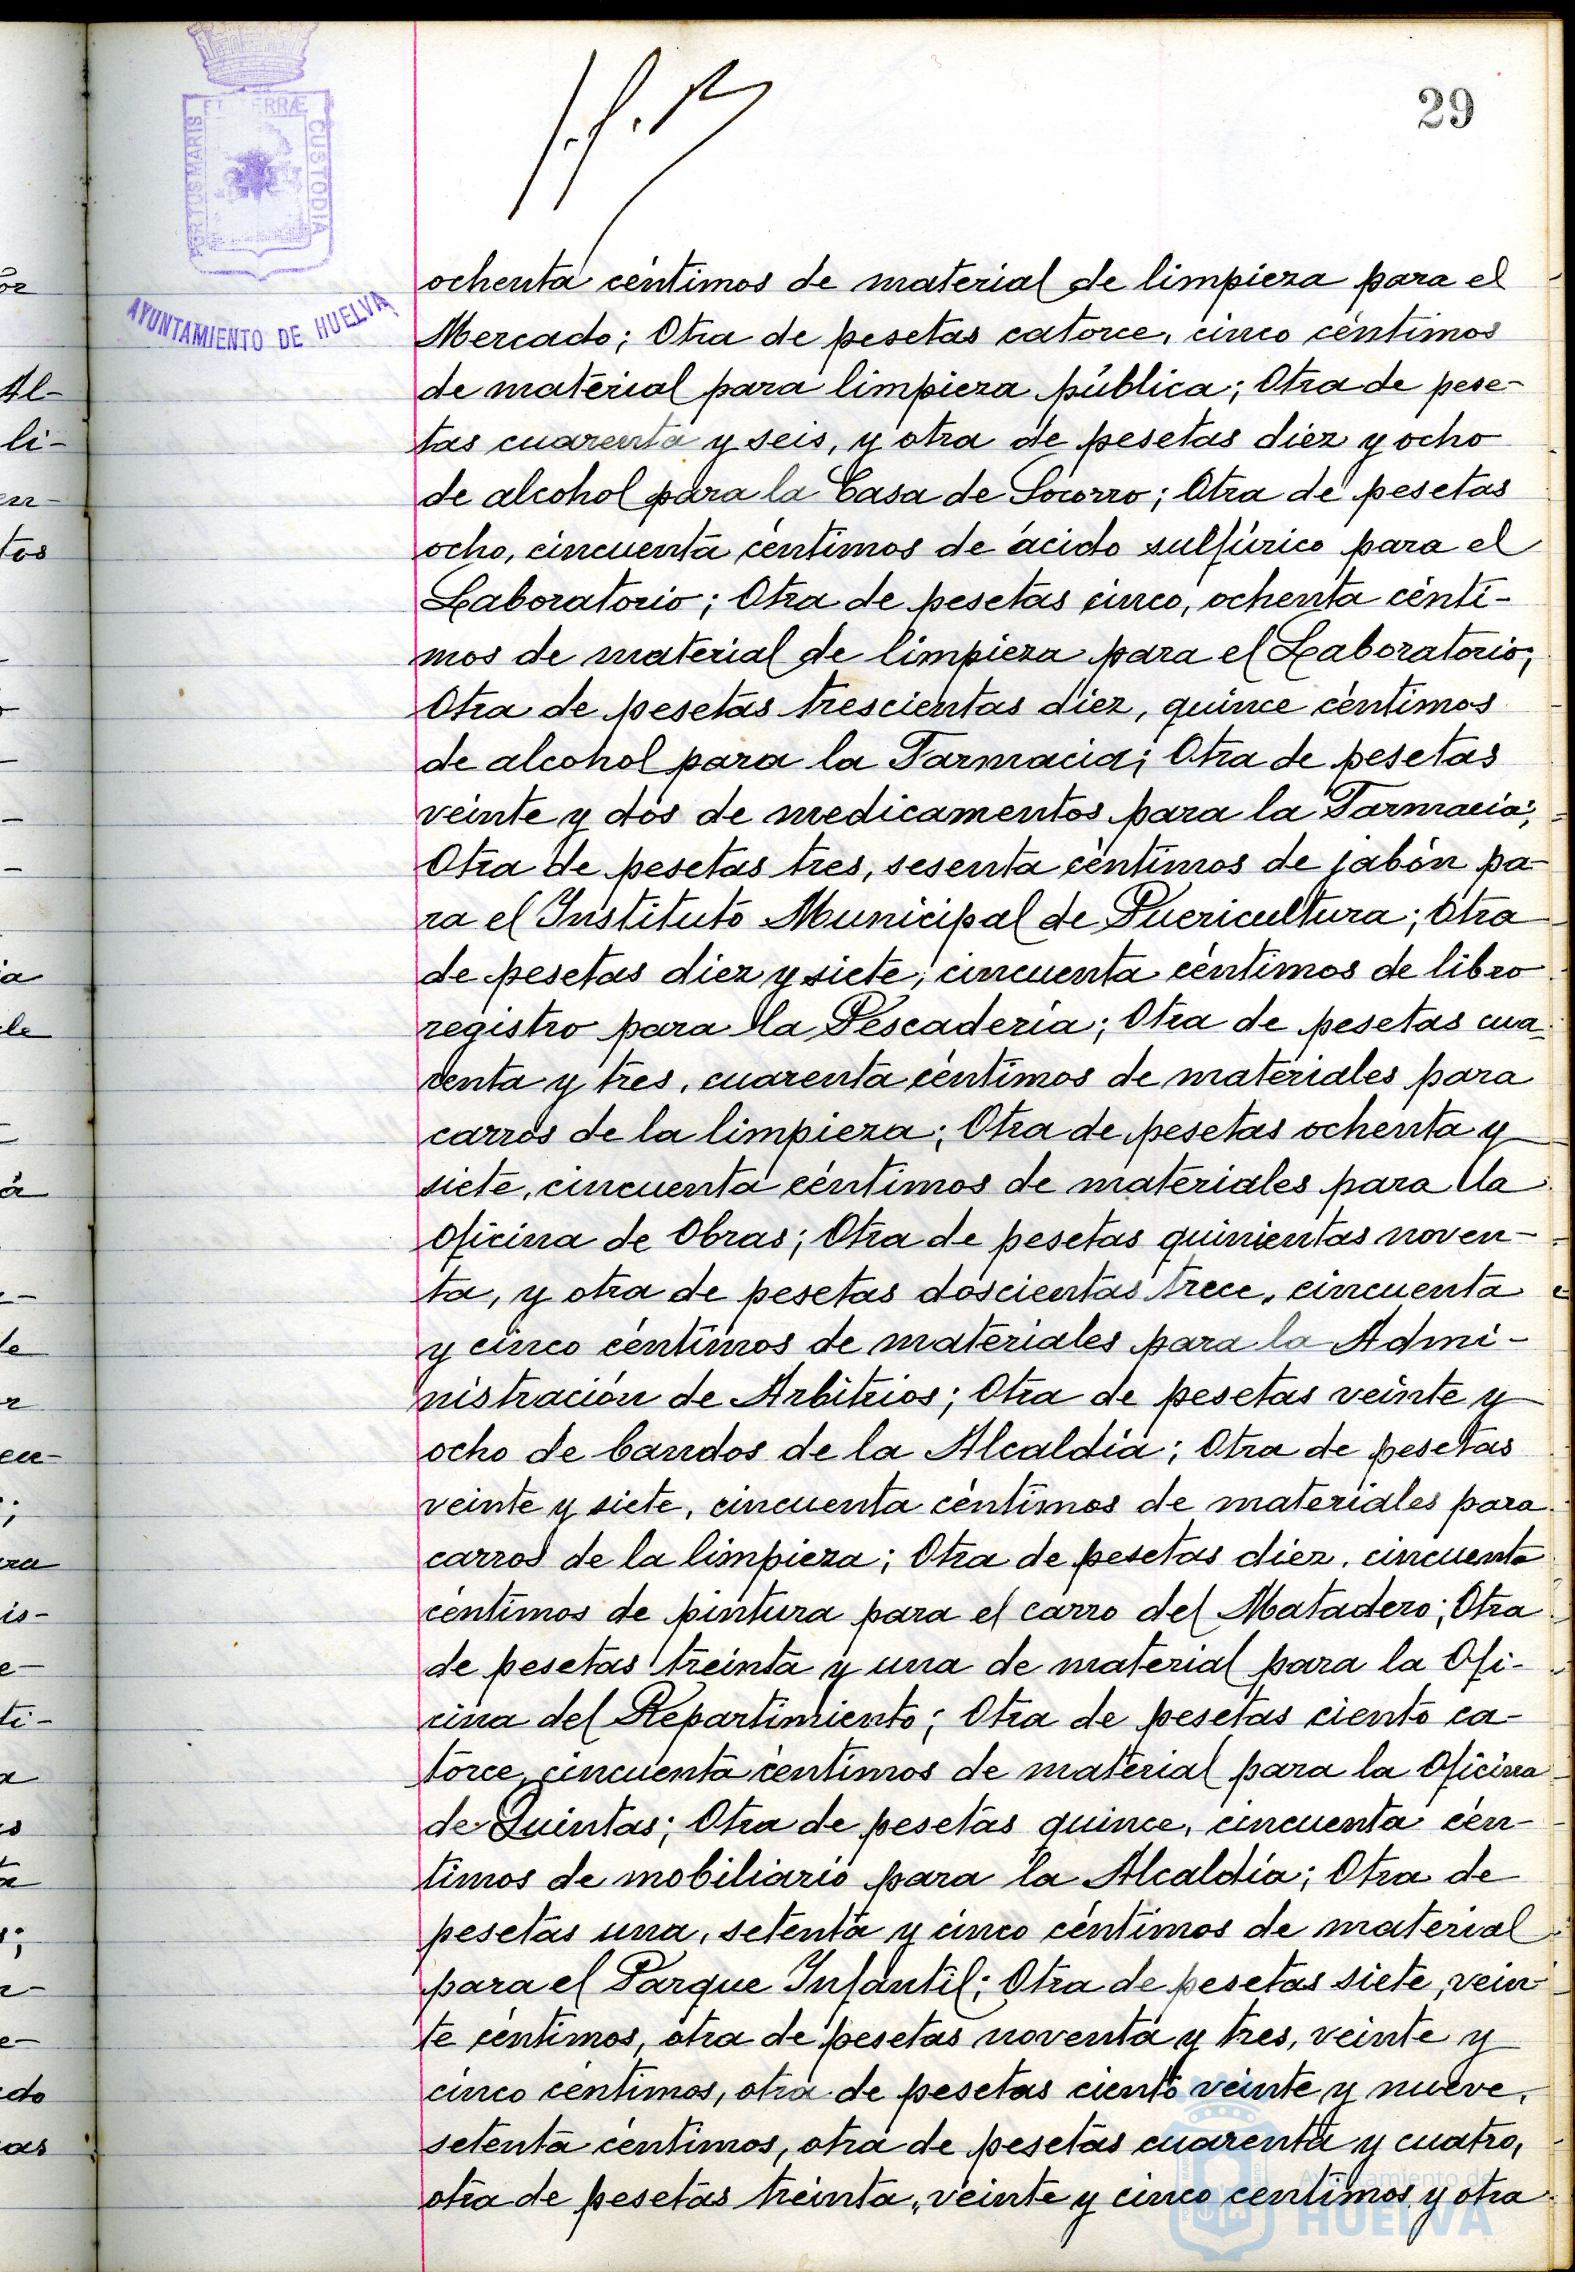 29
PORTUS MARIS
ET TERRÆ
CUSTODIA
AYUNTAMIENTO DE HUELVA
ochenta céntimos de material de limpieza para el
Mercado; Otra de pesetas catorce, cinco céntimos
de material para limpieza pública; Otra de pese-
tas cuarenta y seis, y otra de pesetas diez y ocho
de alcohol para la Casa de Socorro; Otra de pesetas
ocho, cincuenta céntimos de ácido sulfúrico para el
Laboratorio; Otra de pesetas cinco, ochenta cénti-
mos de material de limpieza para el Laboratorio;
Otra de pesetas trescientas diez, quince céntimos
de alcohol para la Farmacia; Otra de pesetas
veinte y dos de medicamentos para la Farmacia;
Otra de pesetas tres, sesenta céntimos de jabón pa-
ra el Instituto Municipal de Puericultura; Otra
de pesetas diez y siete, cincuenta céntimos de libro
registro para la Pescadería; Otra de pesetas cua-
renta y tres, cuarenta céntimos de materiales para
carros de la limpieza; Otra de pesetas ochenta y
siete, cincuenta céntimos de materiales para la
Oficina de Obras; Otra de pesetas quinientas noven-
ta, y otra de pesetas doscientas trece, cincuenta
y cinco céntimos de materiales para la Admi-
nistración de Arbitrios; Otra de pesetas veinte y
ocho de bandos de la Alcaldía; Otra de pesetas
veinte y siete, cincuenta céntimos de materiales para
carros de la limpieza; Otra de pesetas diez, cincuenta
céntimos de pintura para el carro del Matadero; Otra
de pesetas treinta y una de material para la Ofi-
cina del Repartimiento; Otra de pesetas ciento ca-
torce, cincuenta céntimos de material para la Oficina
de Quintas; Otra de pesetas quince, cincuenta cén-
timos de mobiliario para la Alcaldía; Otra de
pesetas una, setenta y cinco céntimos de material
para el Parque Infantil; Otra de pesetas siete, vein-
te céntimos, otra de pesetas noventa y tres, veinte y
cinco céntimos, otra de pesetas ciento veinte y nueve,
setenta céntimos, otra de pesetas cuarenta y cuatro,
otra de pesetas treinta, veinte y cinco céntimos y otra
Ayuntamiento de
HUELVA